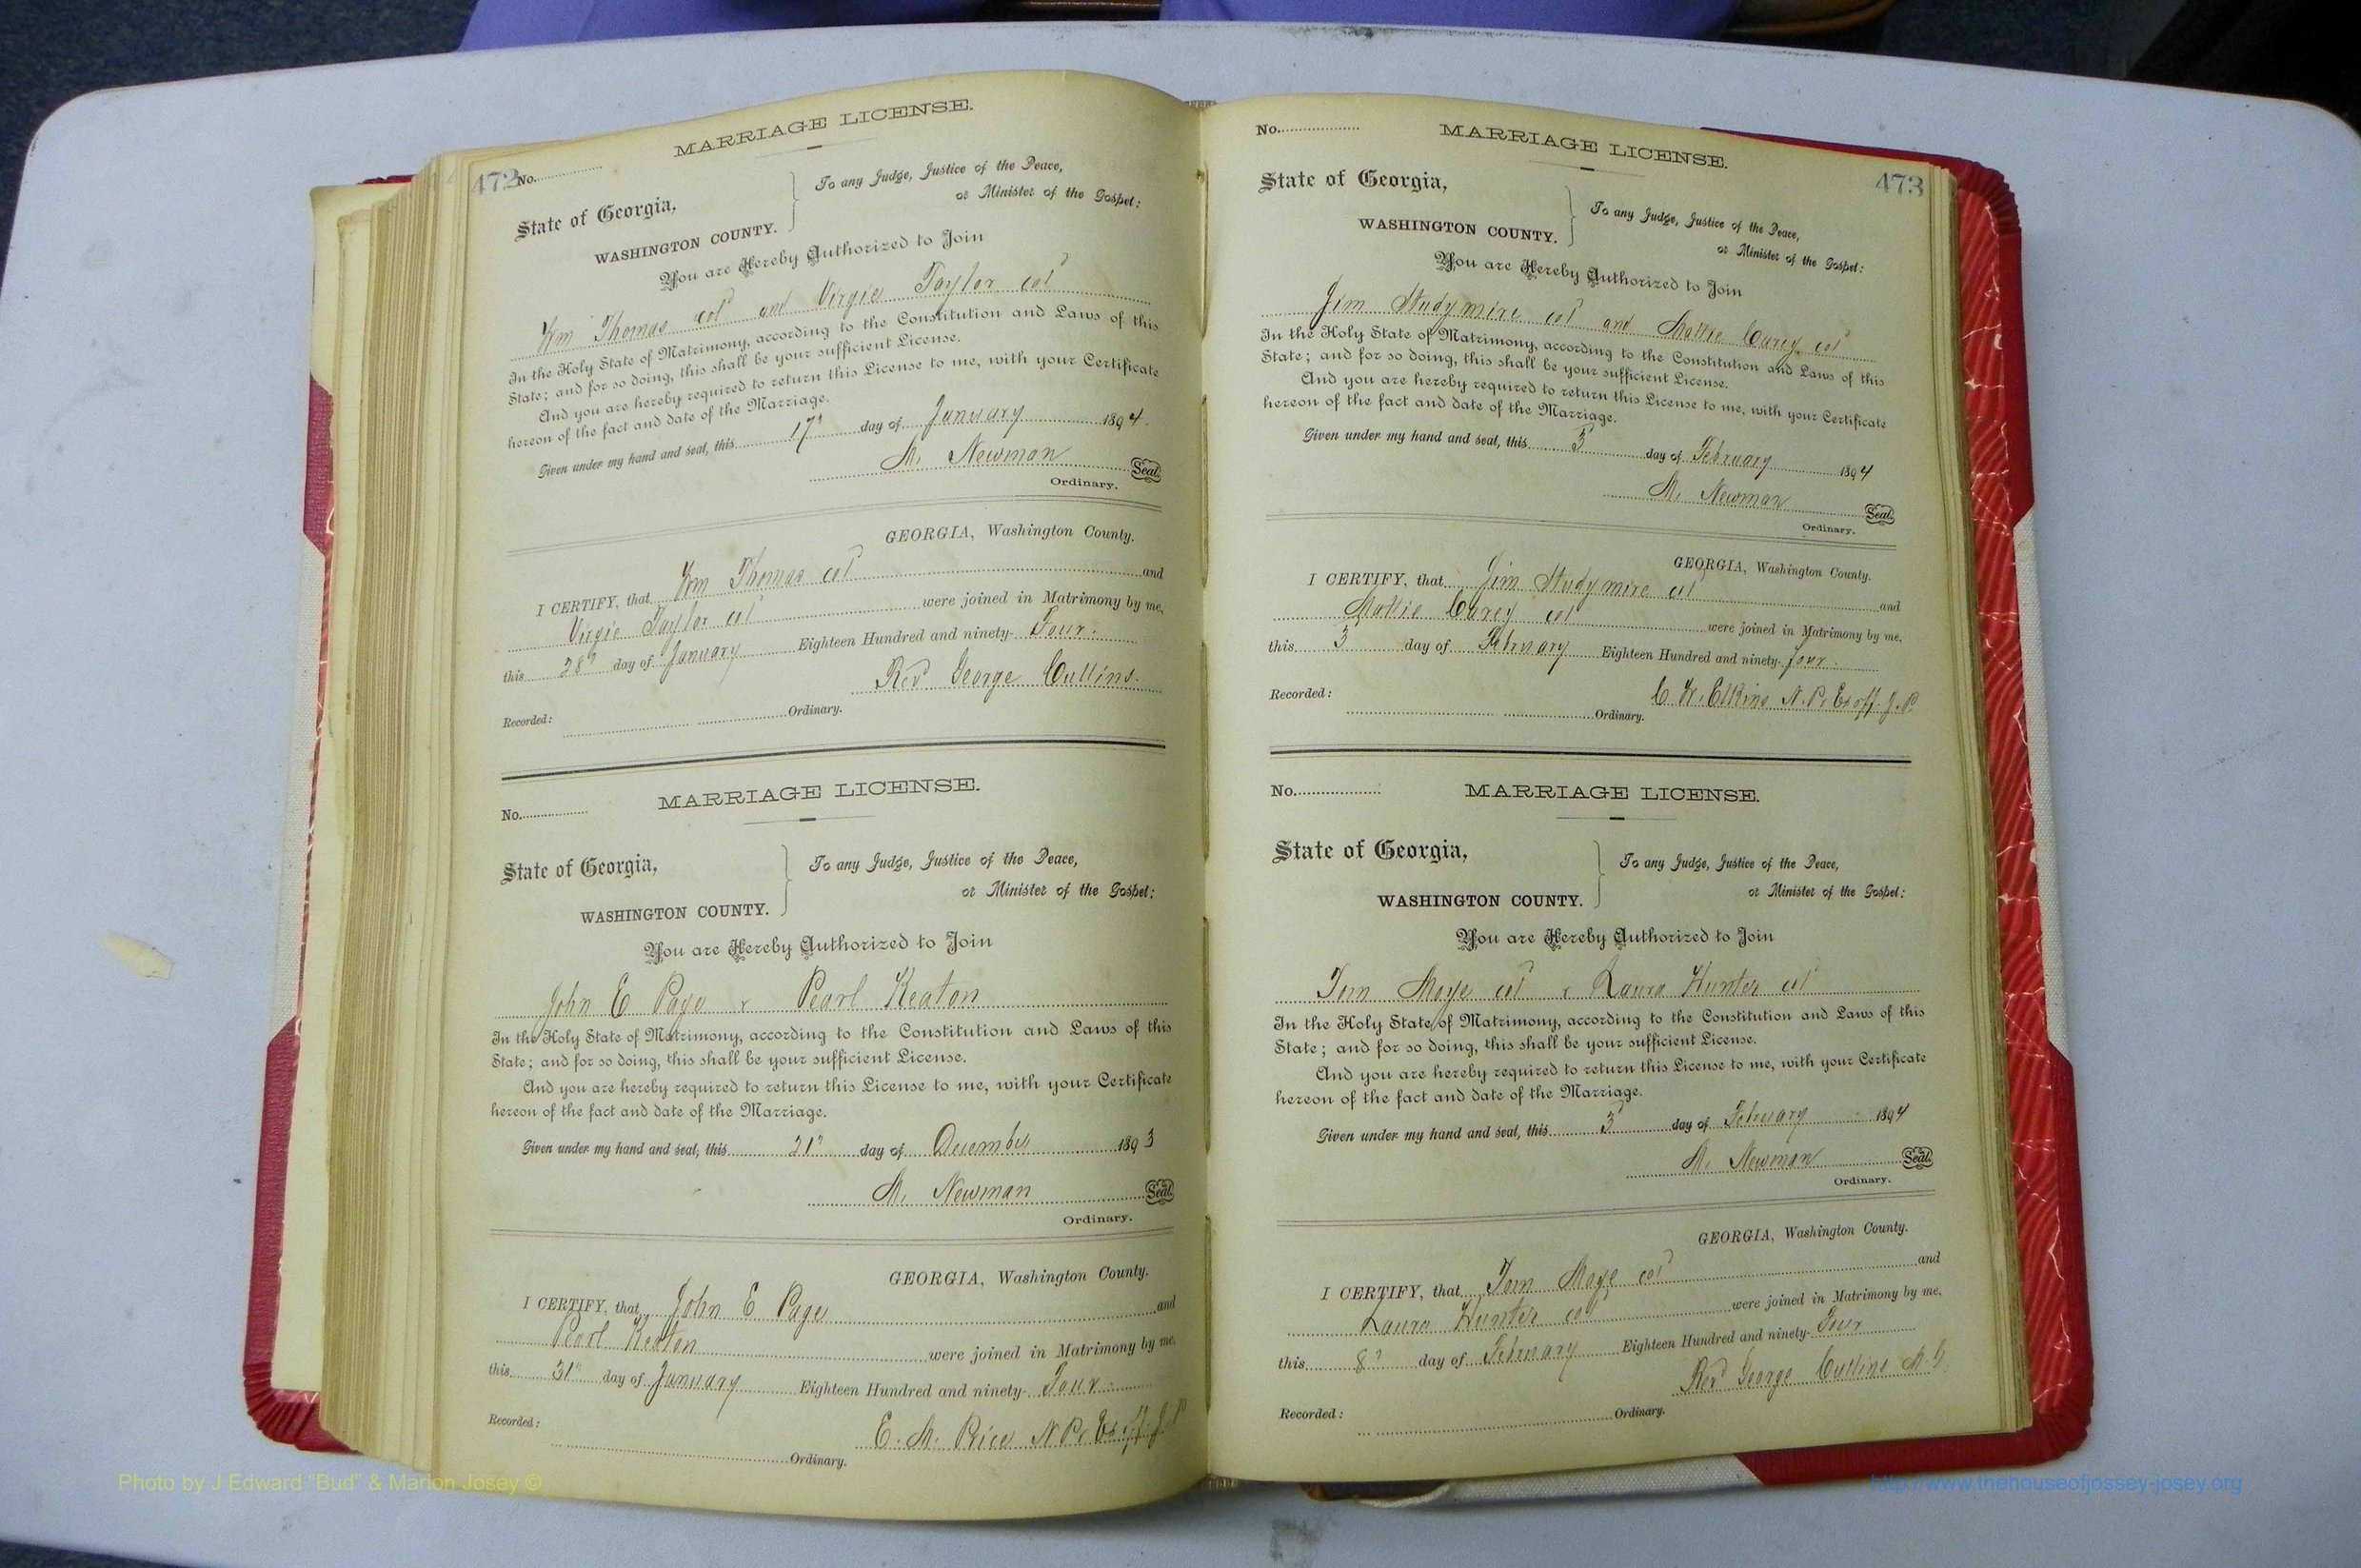 472
No.
MARRIAGE LICENSE.
State of Georgia,
WASHINGTON COUNTY.
To any Judge, Justice of the Peace,
or Minister of the Gospel:
You are Hereby Authorized to Join
Wm Thomas col and Virgie Taylor col
In the Holy State of Matrimony, according to the Constitution and Laws of this
State; and for so doing, this shall be your sufficient License.
And you are hereby required to return this License to me, with your Certificate
hereon of the fact and date of the Marriage.
Given under my hand and seal, this 17" day of January 1894.
M. Newman Seal.
Ordinary.
GEORGIA, Washington County.
I CERTIFY, that Wm Thomas col and
Virgie Taylor col were joined in Matrimony by me,
this 28" day of January Eighteen Hundred and ninety- Four.
Rev George Cullins.
Recorded: Ordinary.
No.
MARRIAGE LICENSE.
State of Georgia,
WASHINGTON COUNTY.
To any Judge, Justice of the Peace,
or Minister of the Gospel:
You are Hereby Authorized to Join
John E Page & Pearl Keaton
In the Holy State of Matrimony, according to the Constitution and Laws of this
State; and for so doing, this shall be your sufficient License.
And you are hereby required to return this License to me, with your Certificate
hereon of the fact and date of the Marriage.
Given under my hand and seal, this 21" day of December 1893
M. Newman Seal.
Ordinary.
GEORGIA, Washington County.
I CERTIFY, that John E Page and
Pearl Keaton were joined in Matrimony by me,
this 31" day of January Eighteen Hundred and ninety- Four.
E. M. Price N.P. Ex off. J.P
Recorded: Ordinary.
No.
MARRIAGE LICENSE.
473
State of Georgia,
WASHINGTON COUNTY.
To any Judge, Justice of the Peace,
or Minister of the Gospel:
You are Hereby Authorized to Join
Jim Studymire col and Mattie Carey col
In the Holy State of Matrimony, according to the Constitution and Laws of this
State; and for so doing, this shall be your sufficient License.
And you are hereby required to return this License to me, with your Certificate
hereon of the fact and date of the Marriage.
Given under my hand and seal, this 3 day of February 1894
M. Newman Seal.
Ordinary.
GEORGIA, Washington County.
I CERTIFY, that Jim Studymire col and
Mattie Carey col were joined in Matrimony by me,
this 3 day of February Eighteen Hundred and ninety- four.
C. H. Elkins N.P. Ex off. J.P.
Recorded: Ordinary.
No.
MARRIAGE LICENSE.
State of Georgia,
WASHINGTON COUNTY.
To any Judge, Justice of the Peace,
or Minister of the Gospel:
You are Hereby Authorized to Join
Tom Moye col & Laura Hunter col
In the Holy State of Matrimony, according to the Constitution and Laws of this
State; and for so doing, this shall be your sufficient License.
And you are hereby required to return this License to me, with your Certificate
hereon of the fact and date of the Marriage.
Given under my hand and seal, this 3 day of February 1894
M. Newman Seal.
Ordinary.
GEORGIA, Washington County.
I CERTIFY, that Tom Moye col and
Laura Hunter col were joined in Matrimony by me,
this 8" day of February Eighteen Hundred and ninety- Four
Rev George Cullins M.G.
Recorded: Ordinary.
Photo by J Edward "Bud" & Marion Josey ©
http://www.thehouseofjossey-josey.org